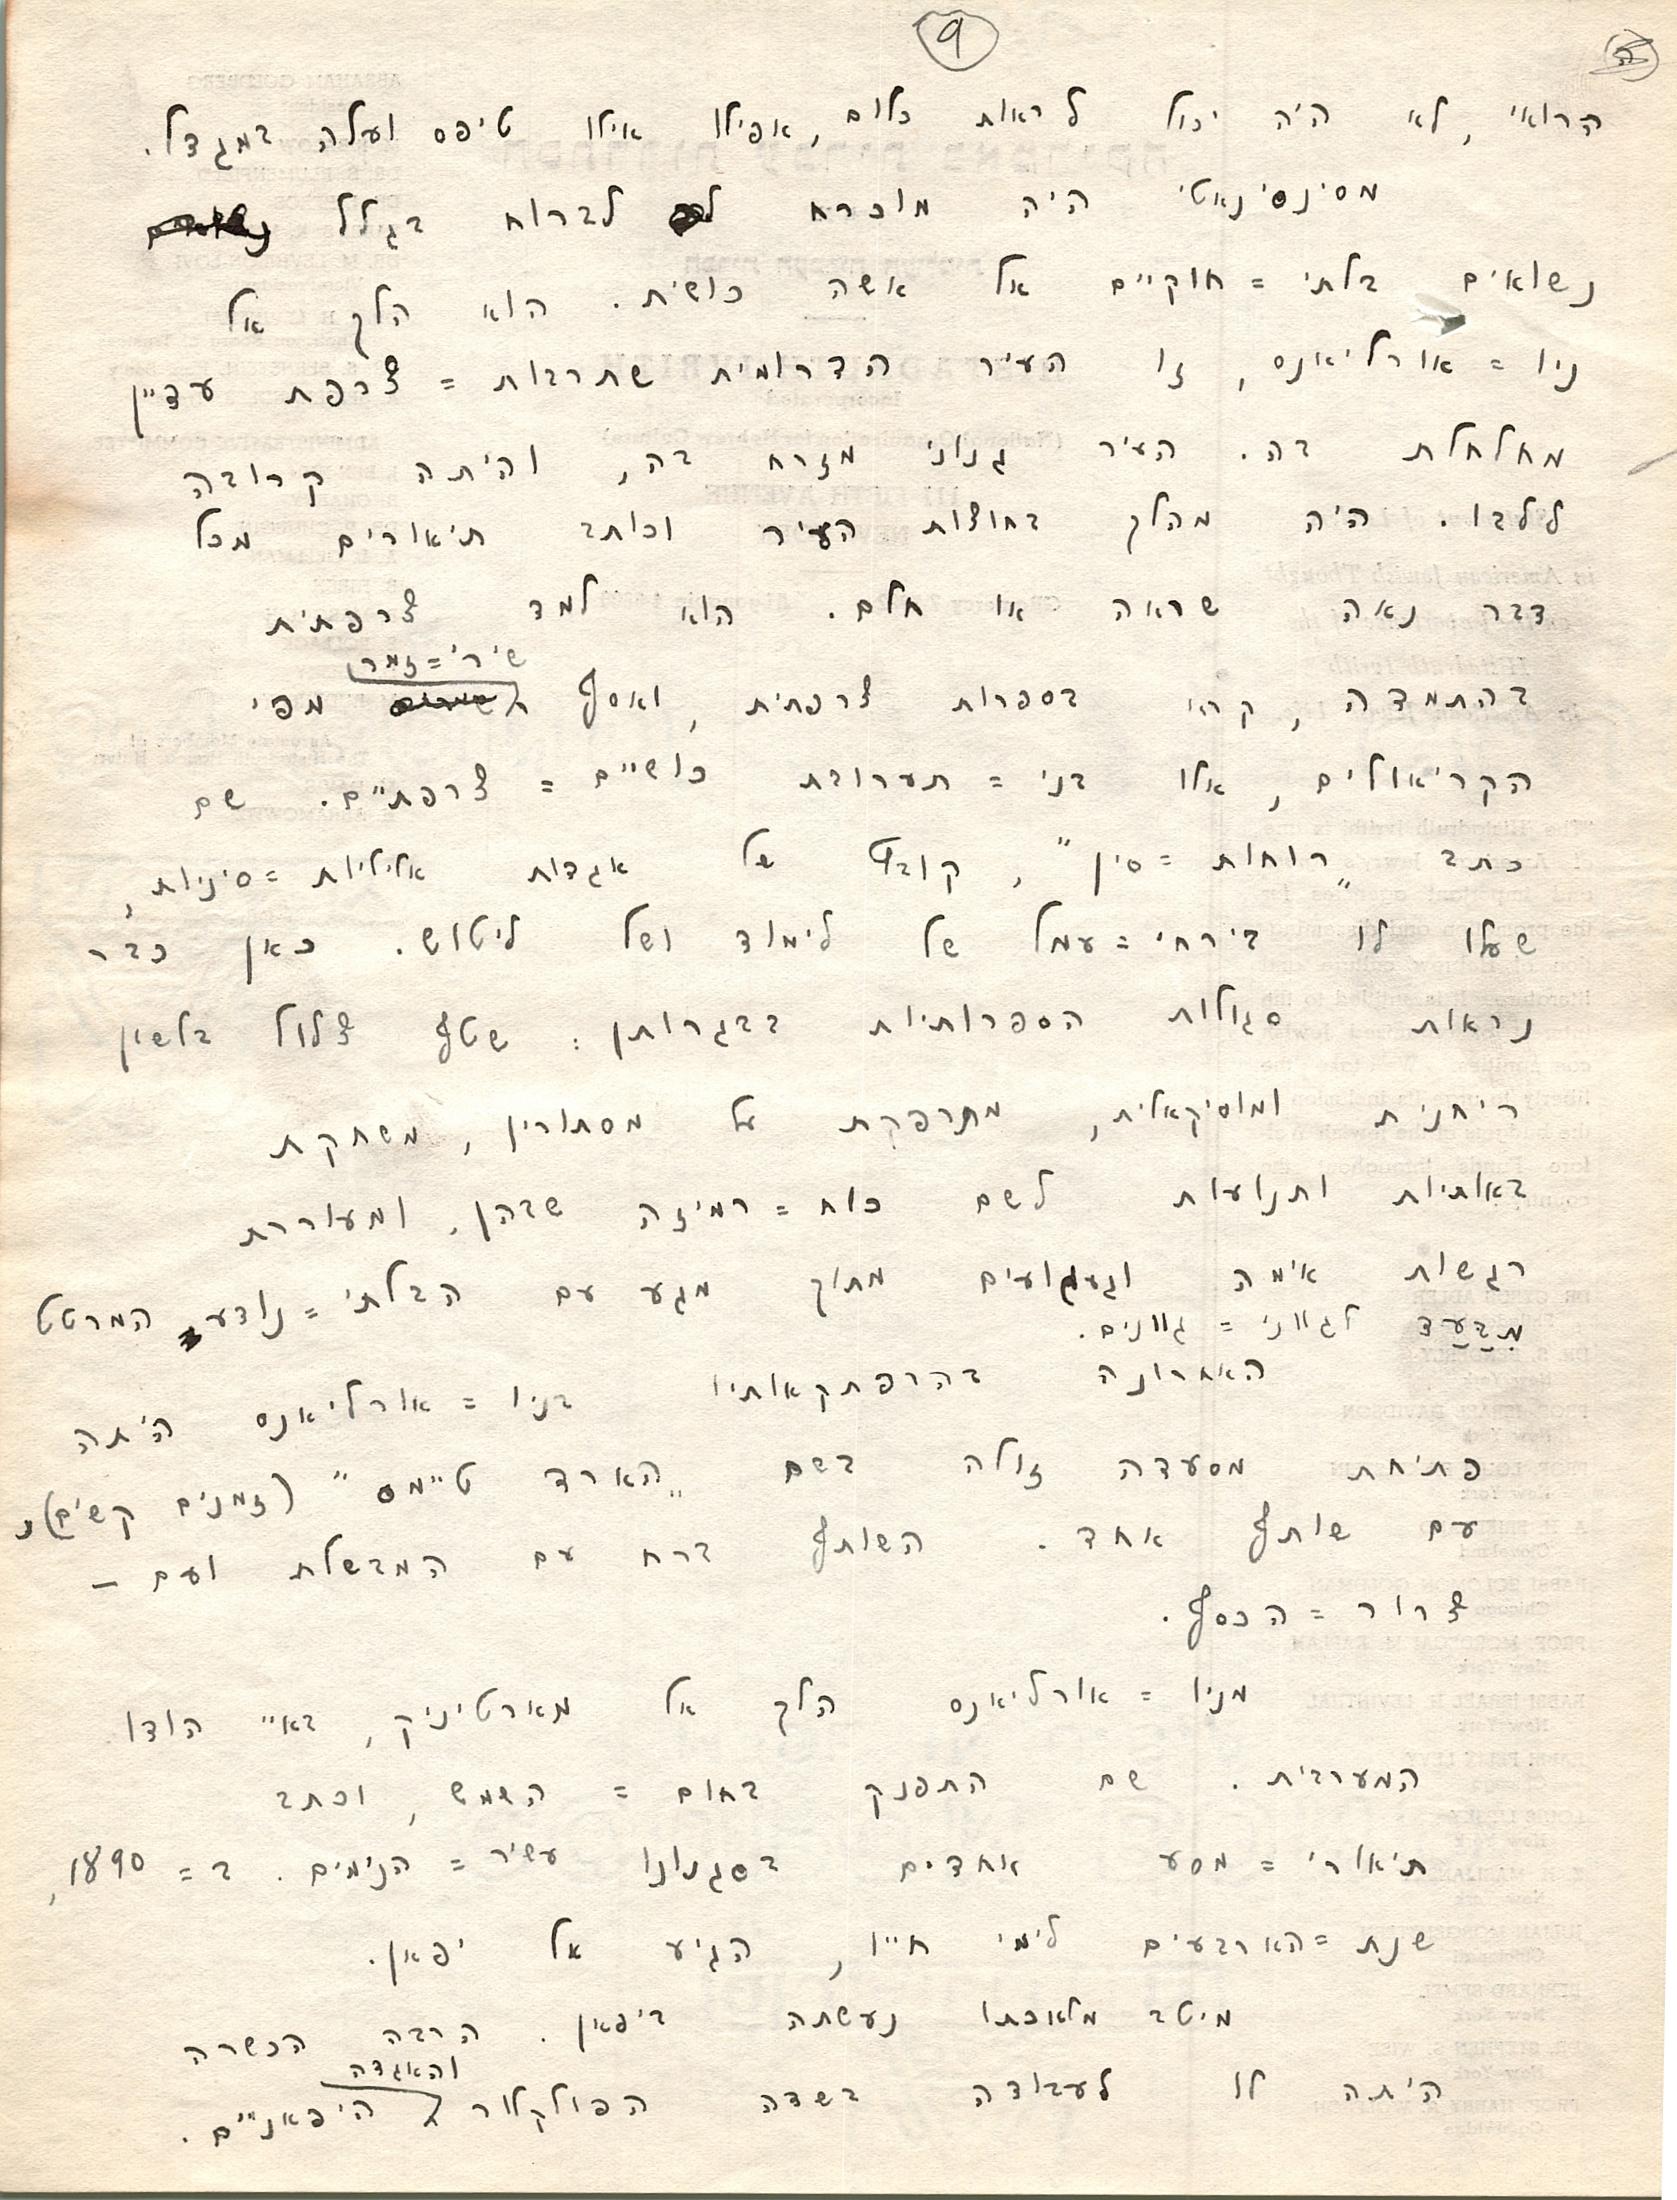 9
הרואי, לא היה יכול לראות כלום, אפילו אילו טיפס ועלה במגדל.
מסינסינאטי היה מוכרח לברוח בגלל
נשואים בלתי=חוקיים אל אשה כושית. הוא הלך אל
ניו=אורליאנס, זו העיר הדרומית שתרבות=צרפת עדיין
מחלחלת בה. העיר גנוני מזרח בה, והיתה קרובה
ללבו. היה מהלך בחוצות העיר וכותב תיאורים מכל
דבר נאה שראה או חלם. הוא למד צרפתית
שירי=זמר
בהתמדה, קרא בספרות צרפתית, ואסף מפי
הקריאולים, אלו בני=תערובת כושיים=צרפתיים. שם
כתב „רוחות=סין", קובץ של אגדות אליליות=סיניות,
שעלו לו בירחי=עמל של לימוד ושל ליטוש. כאן כבר
נראות סגולות הספרותיות בבגרותן: שטף צלול בלשון
ריחנית ומוסיקאלית, מתרפקת על מסתורין, משחקת
באותיות ותנועות לשם כוח=רמיזה שבהן, ומעוררת
רגשות אימה וגעגועים מתוך מגע עם הבלתי=נודע המרטט
מבעד לגווני=גוונים.
האחרונה בהרפתקאותיו בניו=אורליאנס היתה
פתיחת מסעדה זולה בשם „הארד טיימס" (זמנים קשים),
עם שותף אחד. השותף ברח עם המבשלת ועם –
צרור=הכסף.
מניו=אורליאנס הלך אל מארטיניק, באיי הודו
המערבית. שם התפנק בחום=השמש, וכתב
תיאורי=מסע אחדים בסגנונו עשיר=הנימים. ב=1890,
שנת=הארבעים לימי חייו, הגיע אל יפאן.
מיטב מלאכתו נעשתה ביפאן. הרבה הכשרה
והאגדה
היתה לו לעבודה בשדה הפולקלור היפאניים.